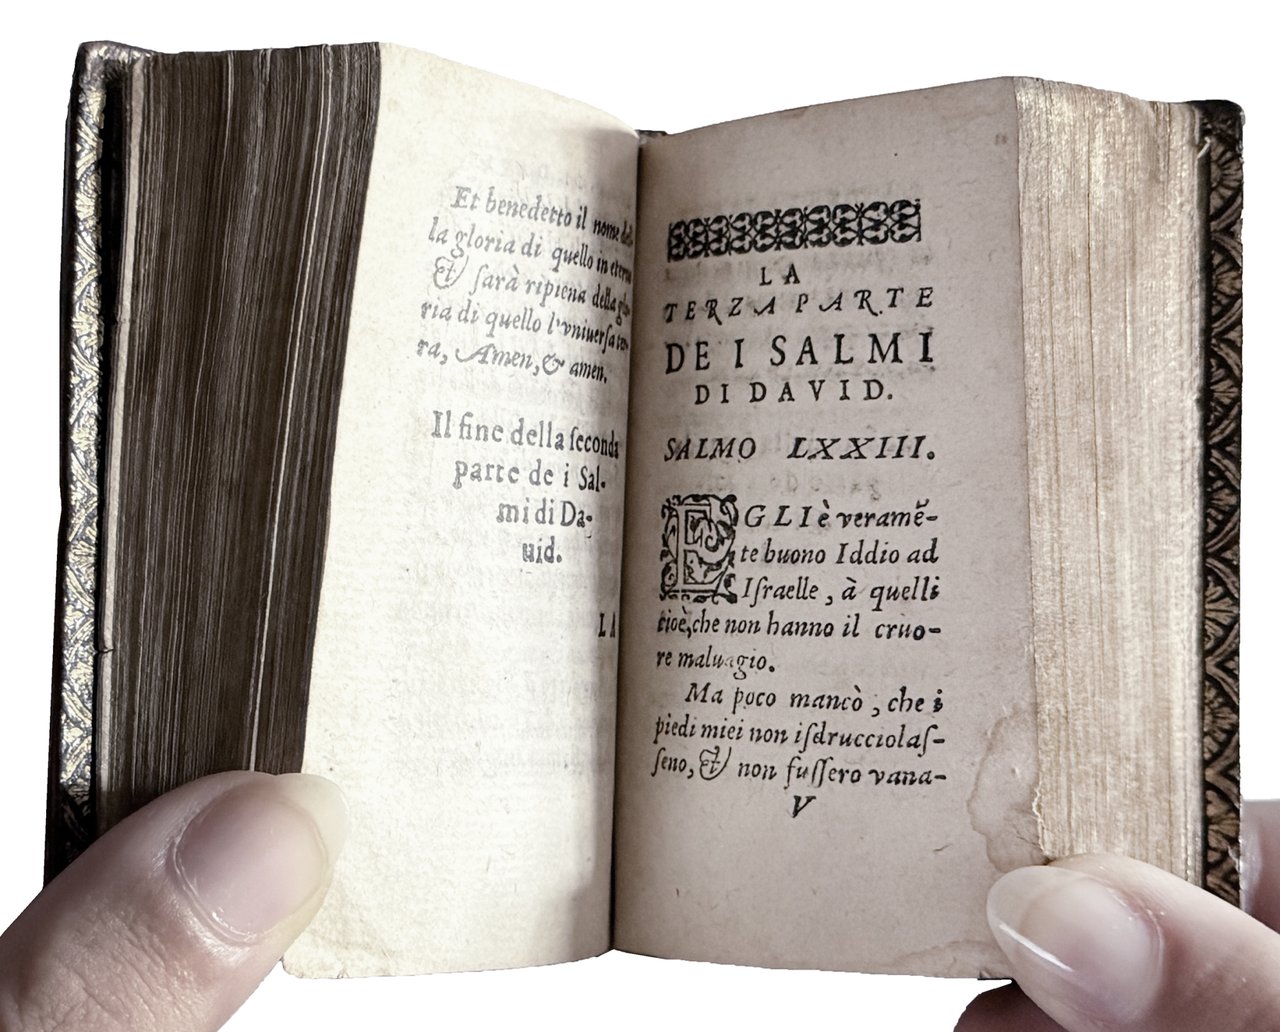 Et benedetto il nome del-
la gloria di quello in eterno
& ſarà ripiena della glo-
ria di quello l'vniuerſa ter-
ra, Amen, & amen.
Il fine della ſeconda
parte de i Sal-
mi di Da-
uid.
LA
LA
TERZA PARTE
DE I SALMI
DI DAVID.
SALMO LXXIII.
EGLI è veramẽ-
te buono Iddio ad
Iſraelle, à quelli
cioè, che non hanno il cuuo-
re maluagio.
Ma poco mancò, che i
piedi miei non iſdrucciolaſ-
ſeno, & non fuſſero vana-
V